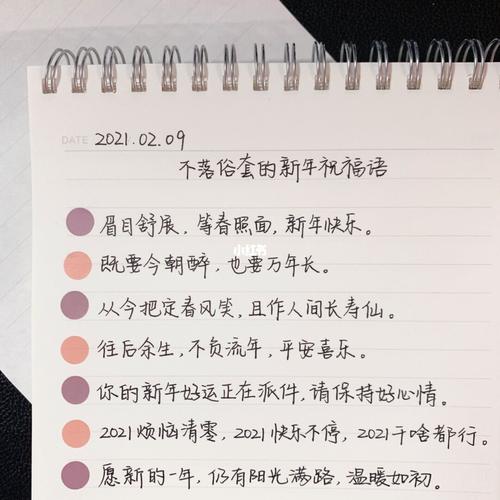 DATE 2021.02.09
不落俗套的新年祝福语
眉目舒展，等春照面，新年快乐。
小红书
既要今朝醉，也要万年长。
从今把定春风笑，且作人间长寿仙。
往后余生，不负流年，平安喜乐。
你的新年好运正在派件，请保持好心情。
2021烦恼清零，2021快乐不停，2021干啥都行。
愿新的一年，仍有阳光满路，温暖如初。